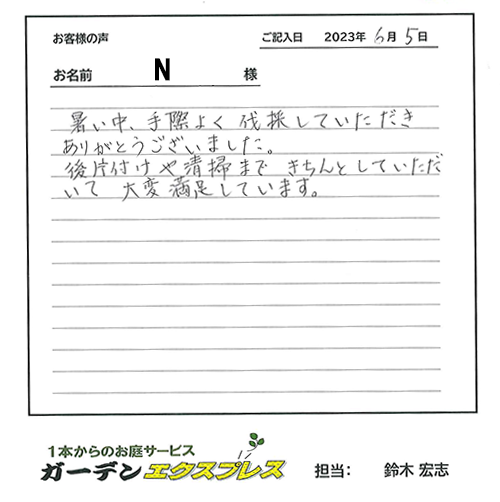 お客様の声
ご記入日 2023年 6月 5日
お名前 N 様
暑い中、手際よく伐採していただき
ありがとうございました。
後片付けや清掃まできちんとしていただ
いて 大変満足しています。
1本からのお庭サービス
ガーデンエクスプレス
担当: 鈴木 宏志